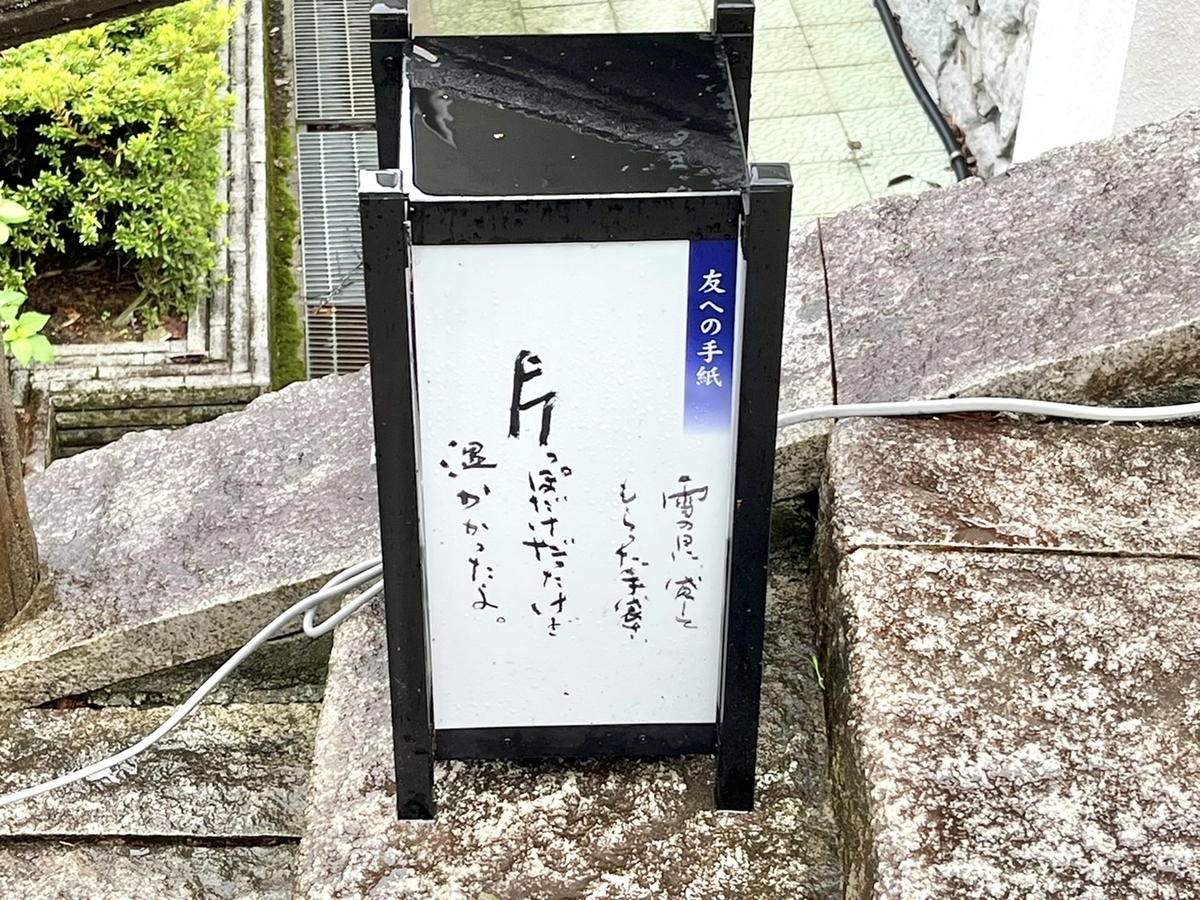 友への手紙
雪の日、貸して
もらった手袋、
片っぽだけだったけど
温かかったよ。